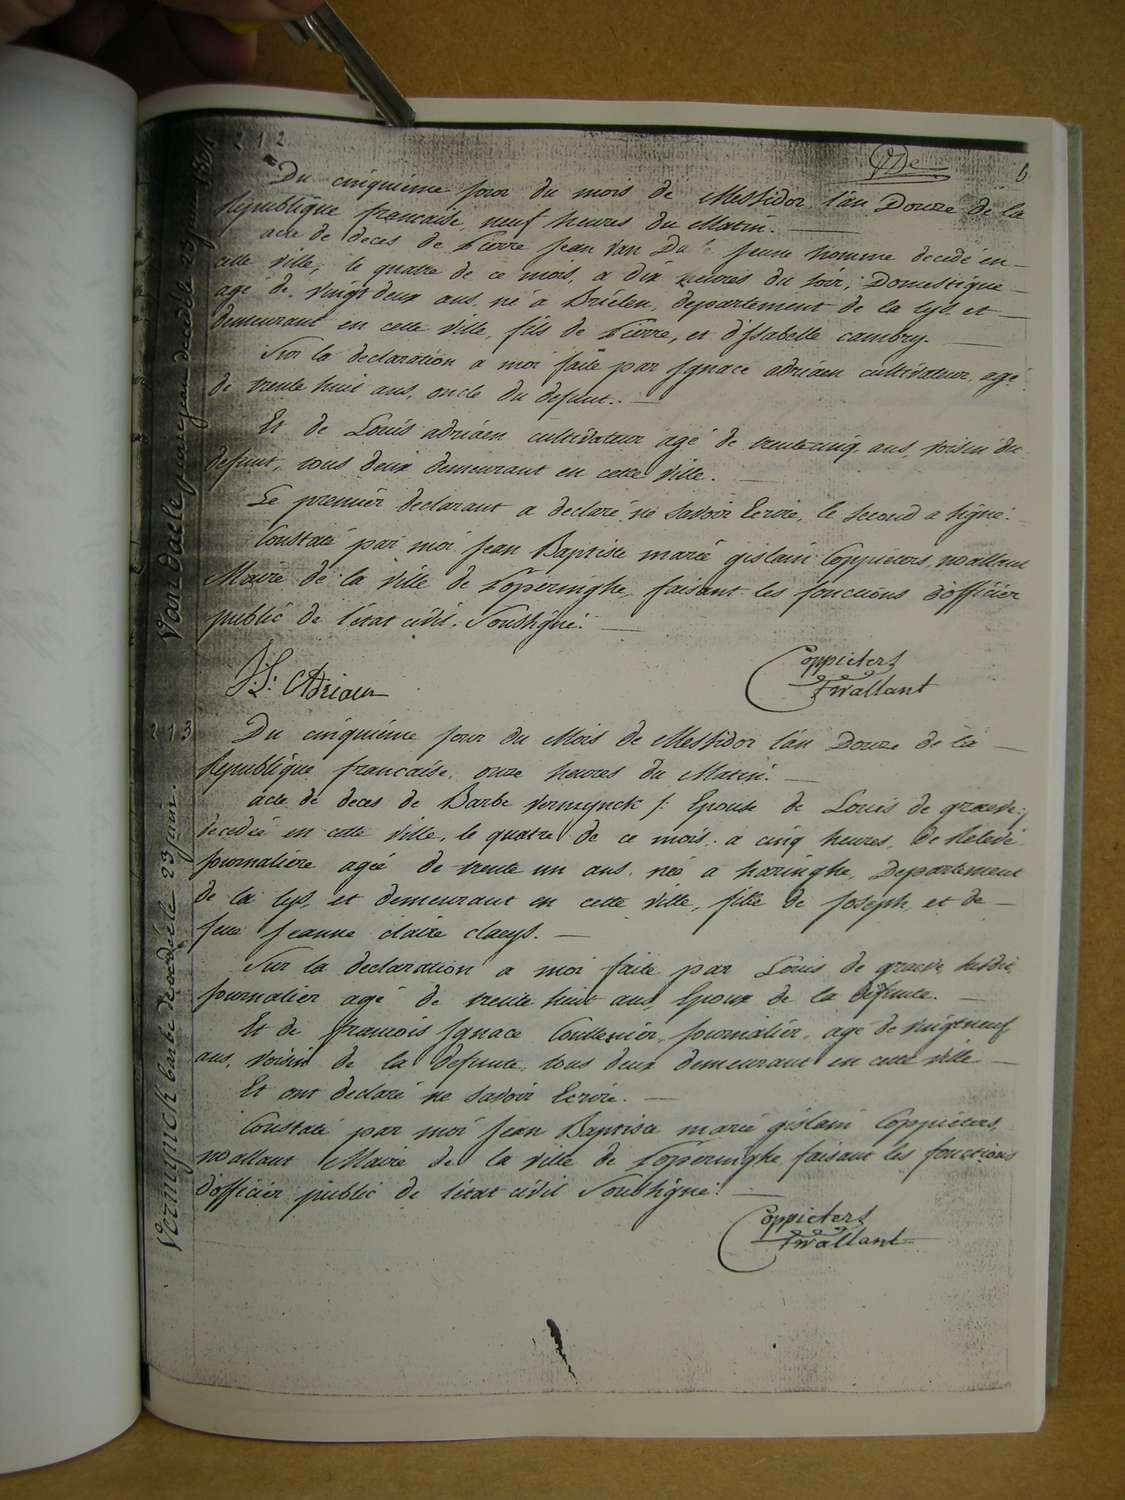 212
Du cinquiéme jour du mois de Messidor l'an Douze de la
Republique francaise, neuf heures du Matin.
acte de deces de Pierre Jean Van Da jeune homme decedé en
cette ville, le quatre de ce mois, a dix heures du soir, Domestique
agé de vingt deux ans, né à Brielen, departement de la Lys, et
demeurant en cette ville, fils de Pierre, et d'Isabelle cambry.
Sur la declaration a moi faite par Ignace adriaen cultivateur, agé
de trente huit ans, oncle du defunt.
Et de Louis adriaen cultivateur agé de trentecinq ans, voisin du
defunt, tous deux demeurant en cette ville.
Le premier declarant a declaré ne savoir Ecrire, le second a signé.
Constaté par moi Jean Baptiste marie gislain Coppieters, wallant
Maire de la ville de Poperinghe, faisant les fonctions d'officier
public de l'état civil, Soussigné.
J. L. Adriaen
Coppieters
Twallant
Van daele pierre jean decedé le 23 juin 1804
213
Du cinquiéme jour du Mois de Messidor l'an Douze de la
Republique francaise, onze heures du Matin.
acte de deces de Barbe Vermeynck /: Epouse de Louis de graeve:
decedée en cette ville, le quatre de ce mois, a cinq heures, de Relevé
journaliere agée de trente un ans, née a haringhe, Departement
de la Lys, et demeurant en cette ville, fille de Joseph, et de
feue Jeanne claire claeys.
Sur la declaration a moi faite par Louis de graeve susdit,
journalier agé de trente huit ans, Epoux de la defunte.
Et de francois Ignace Couttenier, journalier, agé de vingtneuf
ans, voisin de la defunte, tous deux demeurant en cette ville
Et ont declaré ne savoir Ecrire.
Constaté par moi Jean Baptiste marie gislain Coppieters,
wallant Maire de la ville de Poperinghe, faisant les fonctions
d'officier public de l'état civil Soussigné.
Coppieters
Twallant
Vermynck barbe decedé le 23 juin.